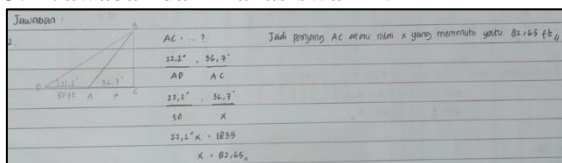 Jawaban:
2.
B
D 22,2° 36,7°
50 ft A x C
AC = ... ?
22,2° . 36,7°
AD AC
22,2° . 36,7°
50 x
22,2° x = 1835
x = 82,65
Jadi panjang AC atau nilai x yang memenuhi yaitu 82,65 ft